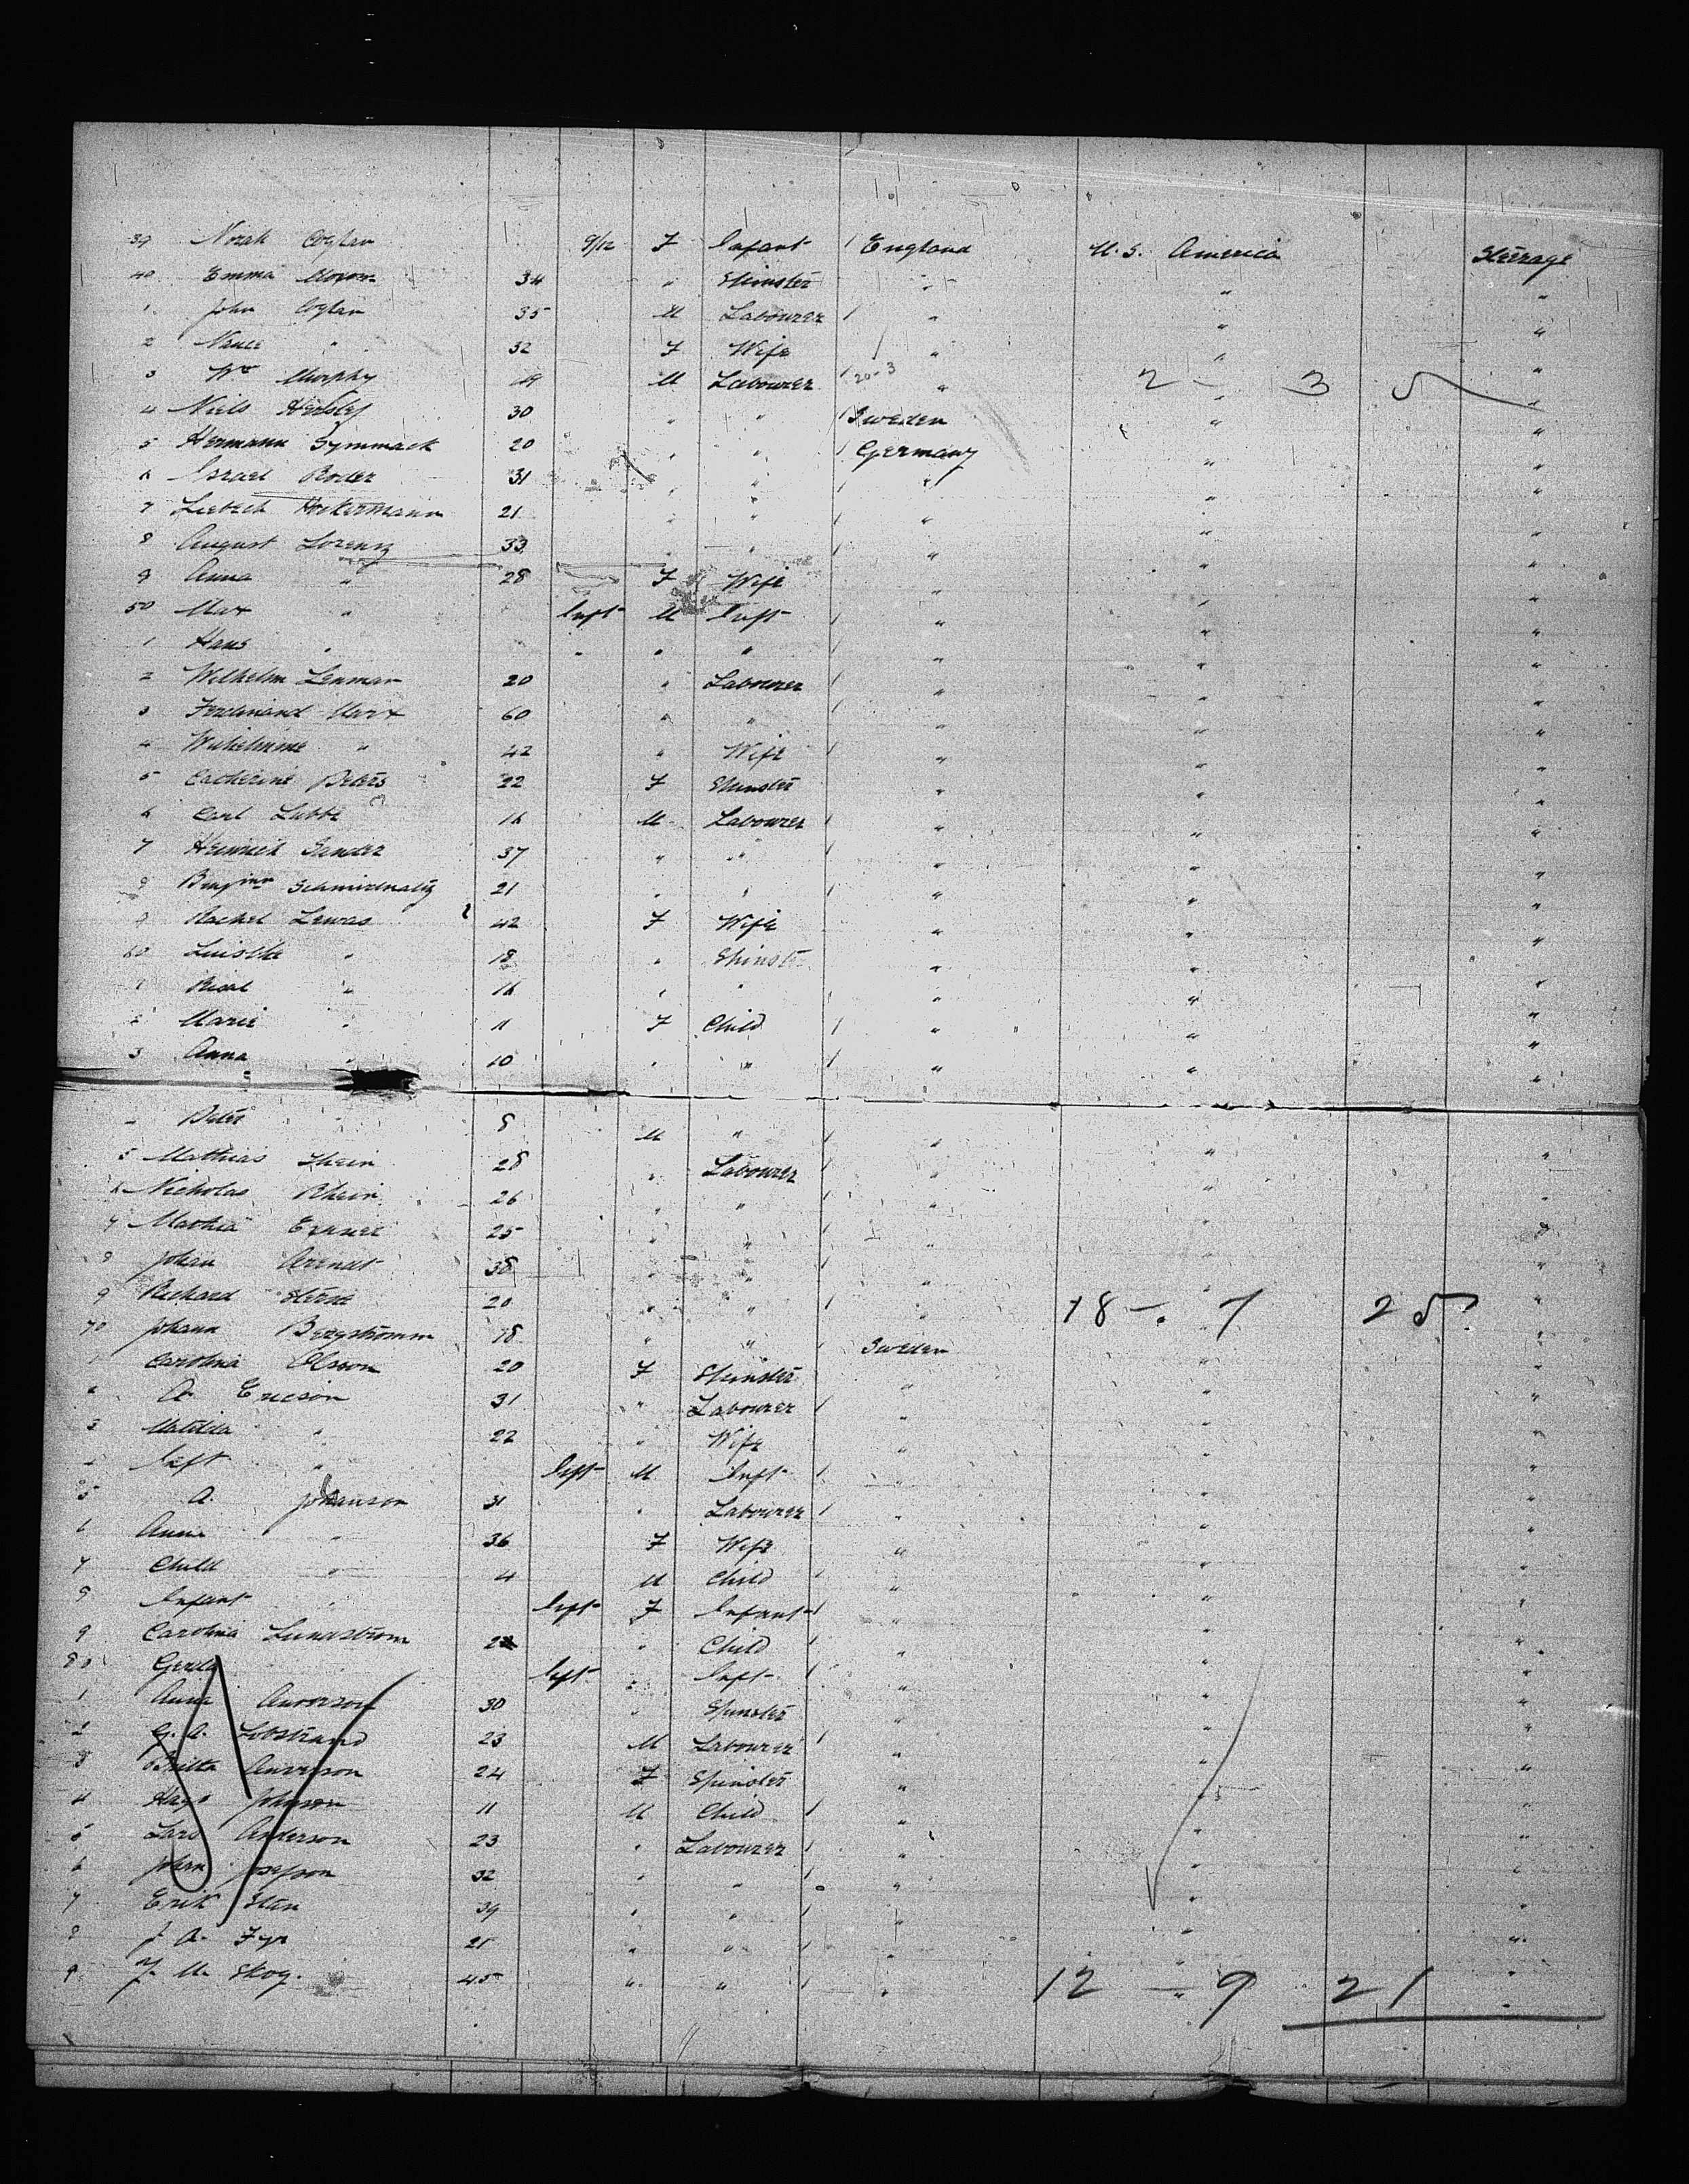 39 Norah Coglan 9/12 F Infant England U.S. America Steerage
40 Emma 34 " Spinster " " "
1 John Coglan 35 M Labourer " " "
2 " 32 F Wife " " "
3 Wm Murphy 19 M Labourer 20-3 " 2 - 3 5 "
4 Niels 30 " " Sweden " "
5 Hermann Symmack 20 " " Germany " "
6 Israel Roder 31 " " " " "
7 21 " " " " "
8 August Lorenz 33 " " " " "
9 Anna " 28 F Wife " " "
50 Max " Inft M Inft " " "
1 Hans " " " " " " "
2 Wilhelm Lenman 20 " Labourer " " "
3 Ferdinand Marx 60 " " " " "
4 Wilhelmine " 42 " Wife " " "
5 Catherine Peters 22 F Spinster " " "
6 Carl Lubbe 16 M Labourer " " "
7 Heinrich Sander 37 " " " " "
8 21 " " " " "
9 Rachel Lewas 42 F Wife " " "
60 " 18 " Spinstr " " "
1 " 16 " " " " "
2 Marie " 11 F Child " " "
3 Anna " 10 " " " " "
Peter " 8 M " " " "
5 Mathias 28 " Labourer " " "
6 Nicholas Rhein 26 " " " " "
7 Mathia 25 " " " " "
8 Johan Arendt 38 " " " " "
9 Richard Sterne 20 " " " 18 - 7 25 "
70 Johann Bergstromm 18 " " Sweden " "
1 Carolina Olsson 20 F Spinster " " "
2 A. Ericson 31 " Labourer " " "
3 Matilda " 22 " Wife " " "
Inft " Inft M Inft " " "
5 A. Johanson 31 " Labourer " " "
6 Anna " 36 F Wife " " "
7 Child " 4 M Child " " "
8 Infant " Inft F Infant " " "
9 Carolina Lundstrom " Child " " "
80 Gerda Inft " Inft " " "
1 Anna Anderson 30 " Spinster " " "
2 G. A. Lobstrand 23 M Labourer " " "
3 Britta Anderson 24 F Spinster " " "
4 Hugo Johnson 11 M Child " " "
5 Lars Anderson 23 " Labourer " " "
6 Johan Josefson 32 " " " " "
7 Erik Stan 39 " " " " "
8 J. A. Fyr 21 " " " " "
9 J. M. Skog. 45 " " " 12 - 9 21 "